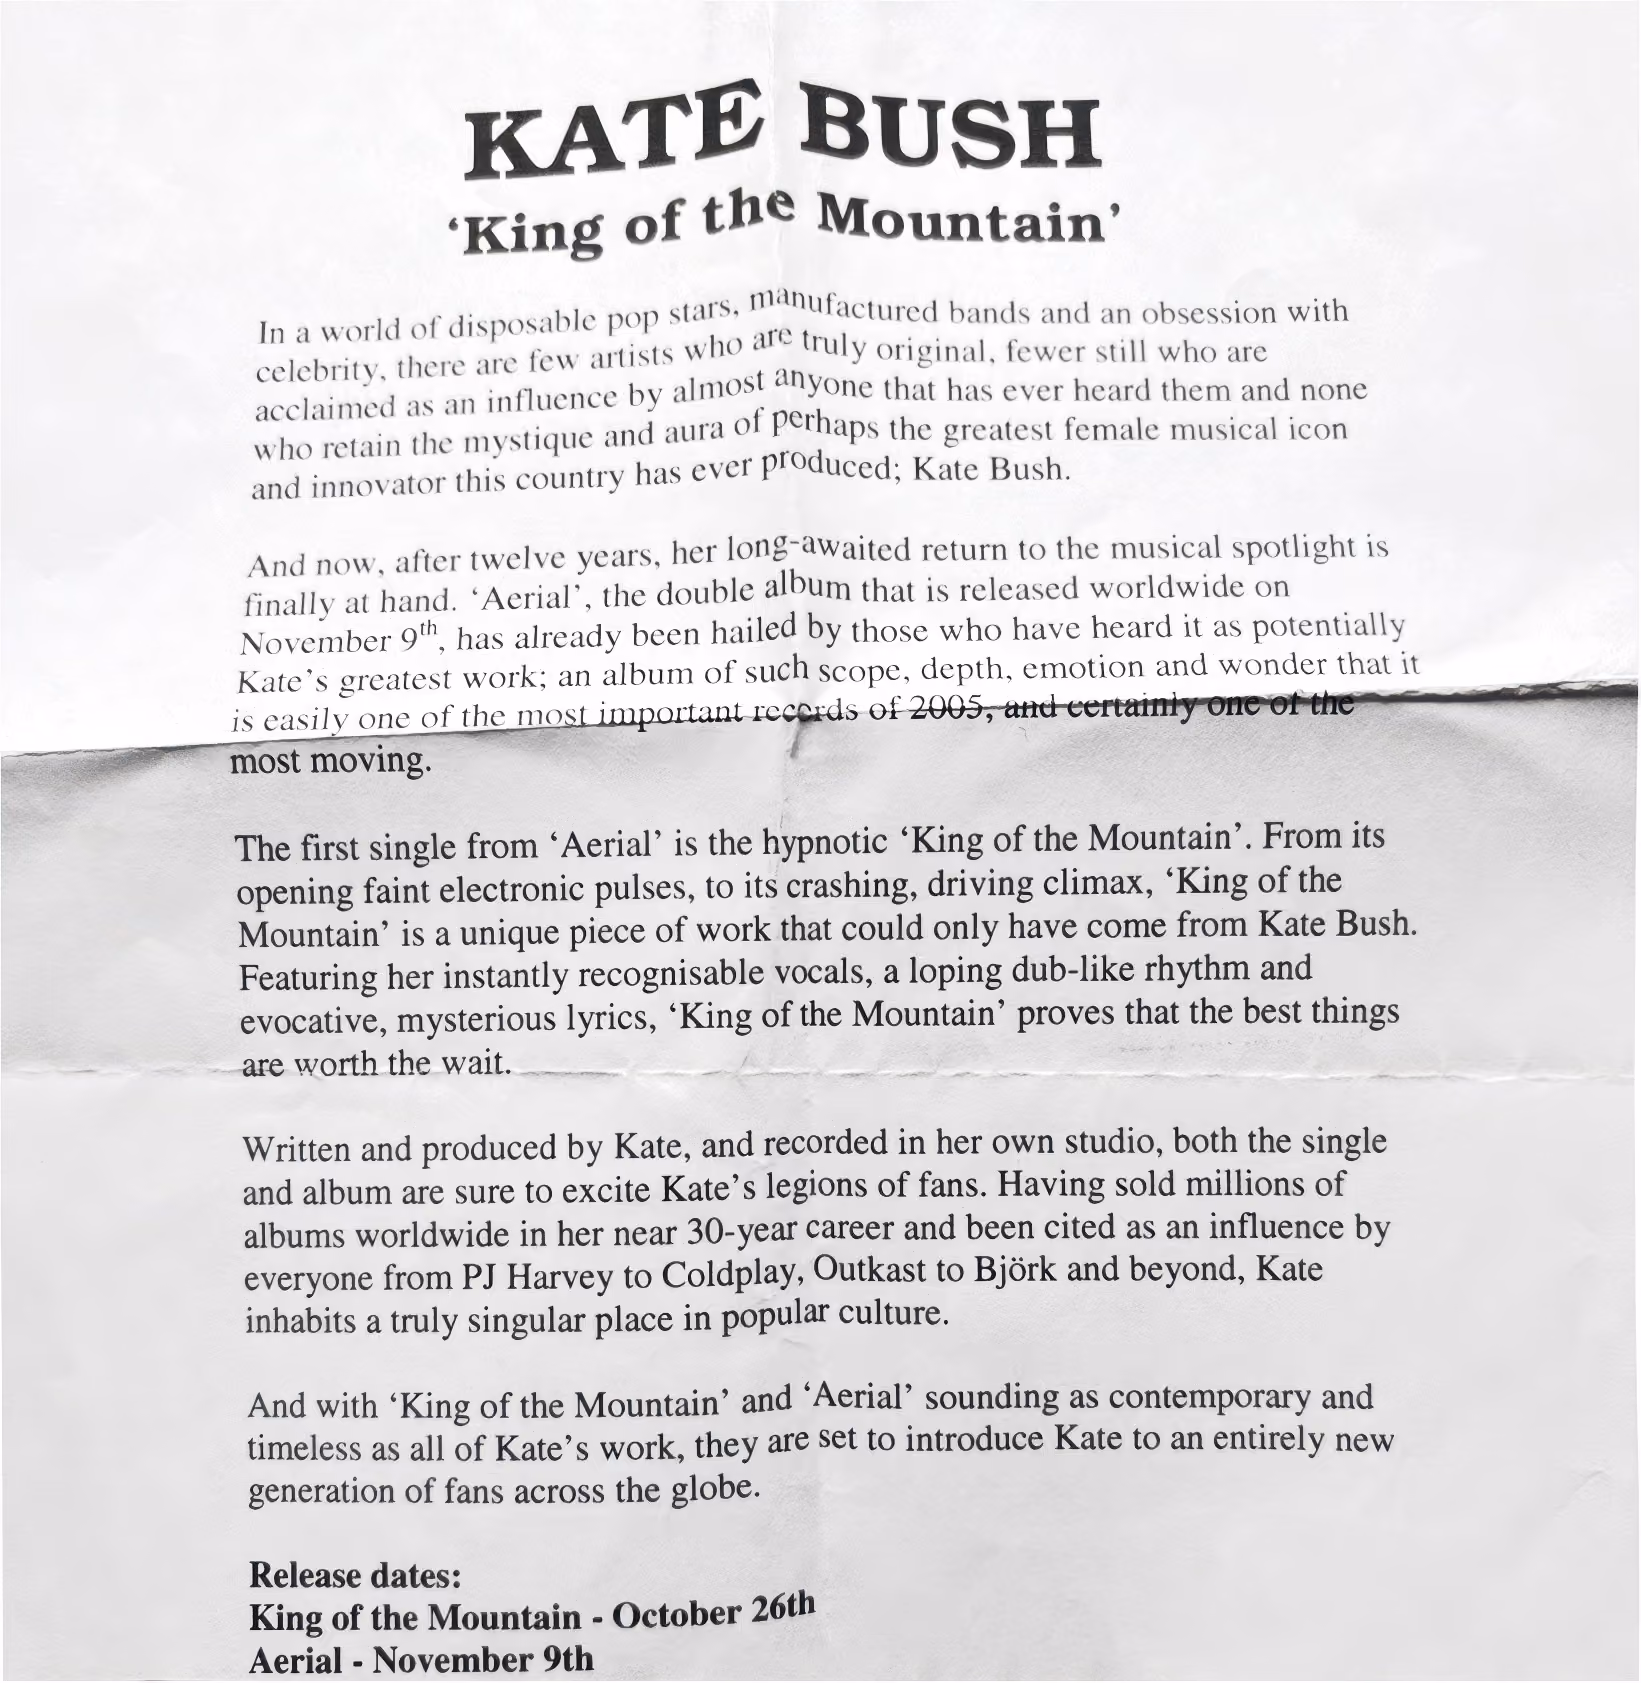 KATE BUSH
‘King of the Mountain’
In a world of disposable pop stars, manufactured bands and an obsession with
celebrity, there are few artists who are truly original, fewer still who are
acclaimed as an influence by almost anyone that has ever heard them and none
who retain the mystique and aura of perhaps the greatest female musical icon
and innovator this country has ever produced; Kate Bush.
And now, after twelve years, her long-awaited return to the musical spotlight is
finally at hand. ‘Aerial’, the double album that is released worldwide on
November 9th, has already been hailed by those who have heard it as potentially
Kate’s greatest work; an album of such scope, depth, emotion and wonder that it
is easily one of the most important records of 2005, and certainly one of the
most moving.
The first single from ‘Aerial’ is the hypnotic ‘King of the Mountain’. From its
opening faint electronic pulses, to its crashing, driving climax, ‘King of the
Mountain’ is a unique piece of work that could only have come from Kate Bush.
Featuring her instantly recognisable vocals, a loping dub-like rhythm and
evocative, mysterious lyrics, ‘King of the Mountain’ proves that the best things
are worth the wait.
Written and produced by Kate, and recorded in her own studio, both the single
and album are sure to excite Kate’s legions of fans. Having sold millions of
albums worldwide in her near 30-year career and been cited as an influence by
everyone from PJ Harvey to Coldplay, Outkast to Björk and beyond, Kate
inhabits a truly singular place in popular culture.
And with ‘King of the Mountain’ and ‘Aerial’ sounding as contemporary and
timeless as all of Kate’s work, they are set to introduce Kate to an entirely new
generation of fans across the globe.
Release dates:
King of the Mountain - October 26th
Aerial - November 9th